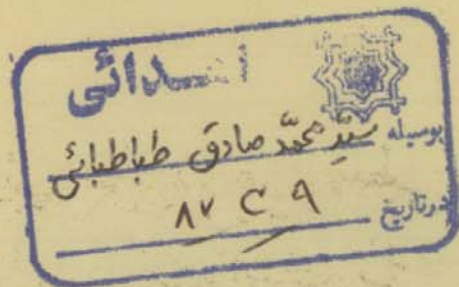 اهدائی
بوسیله سید محمد صادق طباطبائی
در تاریخ ۸۷ ۲ ۹